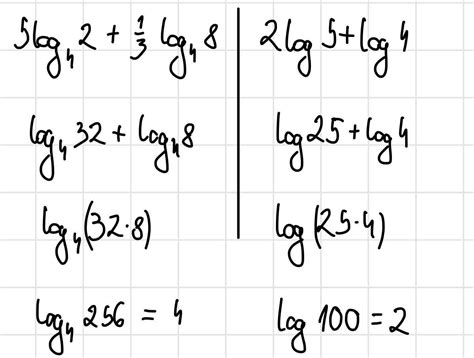 5log₄2 + ⅓ log₄8
log₄32 + log₄8
log₄(32·8)
log₄256 = 4
2log 5+log 4
log25+log4
log(25·4)
log 100 = 2